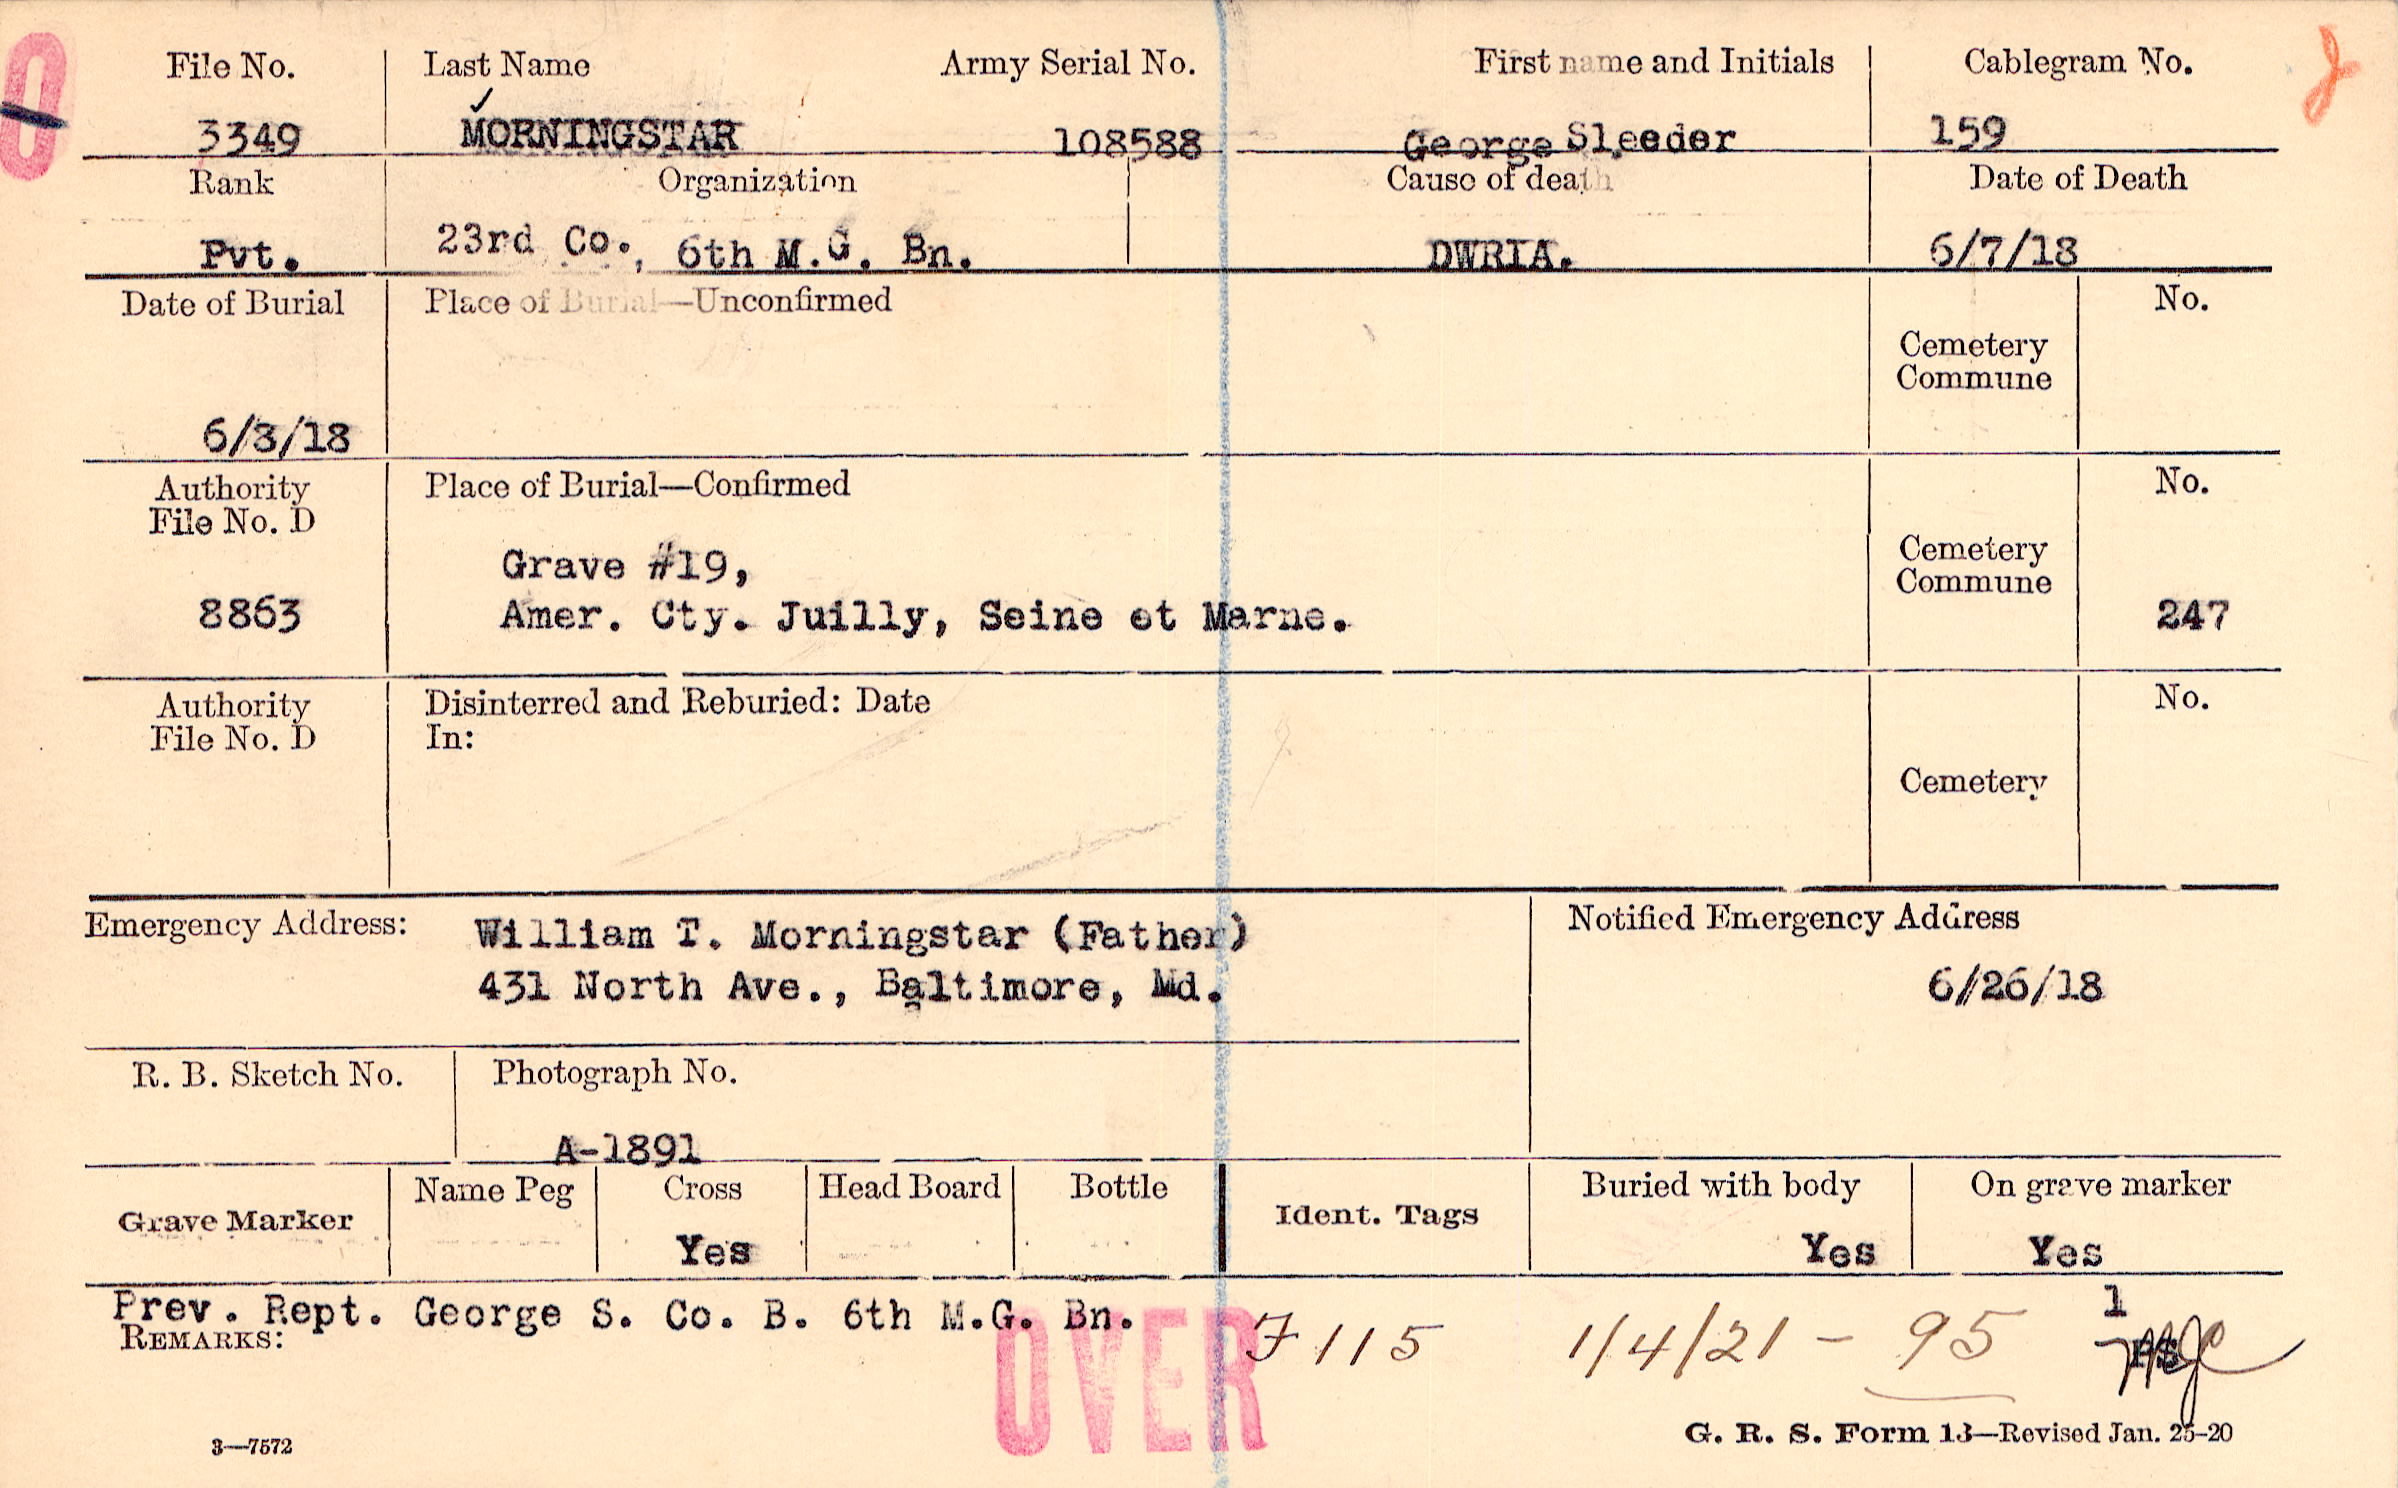 File No. Last Name Army Serial No. First name and Initials Cablegram No.
3349 MORNINGSTAR 108588 George Sleeder 159
Rank Organization Cause of death Date of Death
Pvt. 23rd Co., 6th M.G. Bn. DWRIA. 6/7/18
Date of Burial Place of Burial—Unconfirmed No.
Cemetery
Commune
6/8/18
Authority Place of Burial—Confirmed No.
File No. D
Grave #19, Cemetery
Commune
8863 Amer. Cty. Juilly, Seine et Marne. 247
Authority Disinterred and Reburied: Date No.
File No. D In:
Cemetery
Emergency Address: William T. Morningstar (Father) Notified Emergency Address
431 North Ave., Baltimore, Md. 6/26/18
R. B. Sketch No. Photograph No.
A-1891
Grave Marker Name Peg Cross Head Board Bottle Ident. Tags Buried with body On grave marker
Yes Yes Yes
Prev. Rept. George S. Co. B. 6th M.G. Bn. 1
REMARKS: F 115 1/4/21 - 95
OVER
3—7572 G. R. S. Form 13—Revised Jan. 25-20